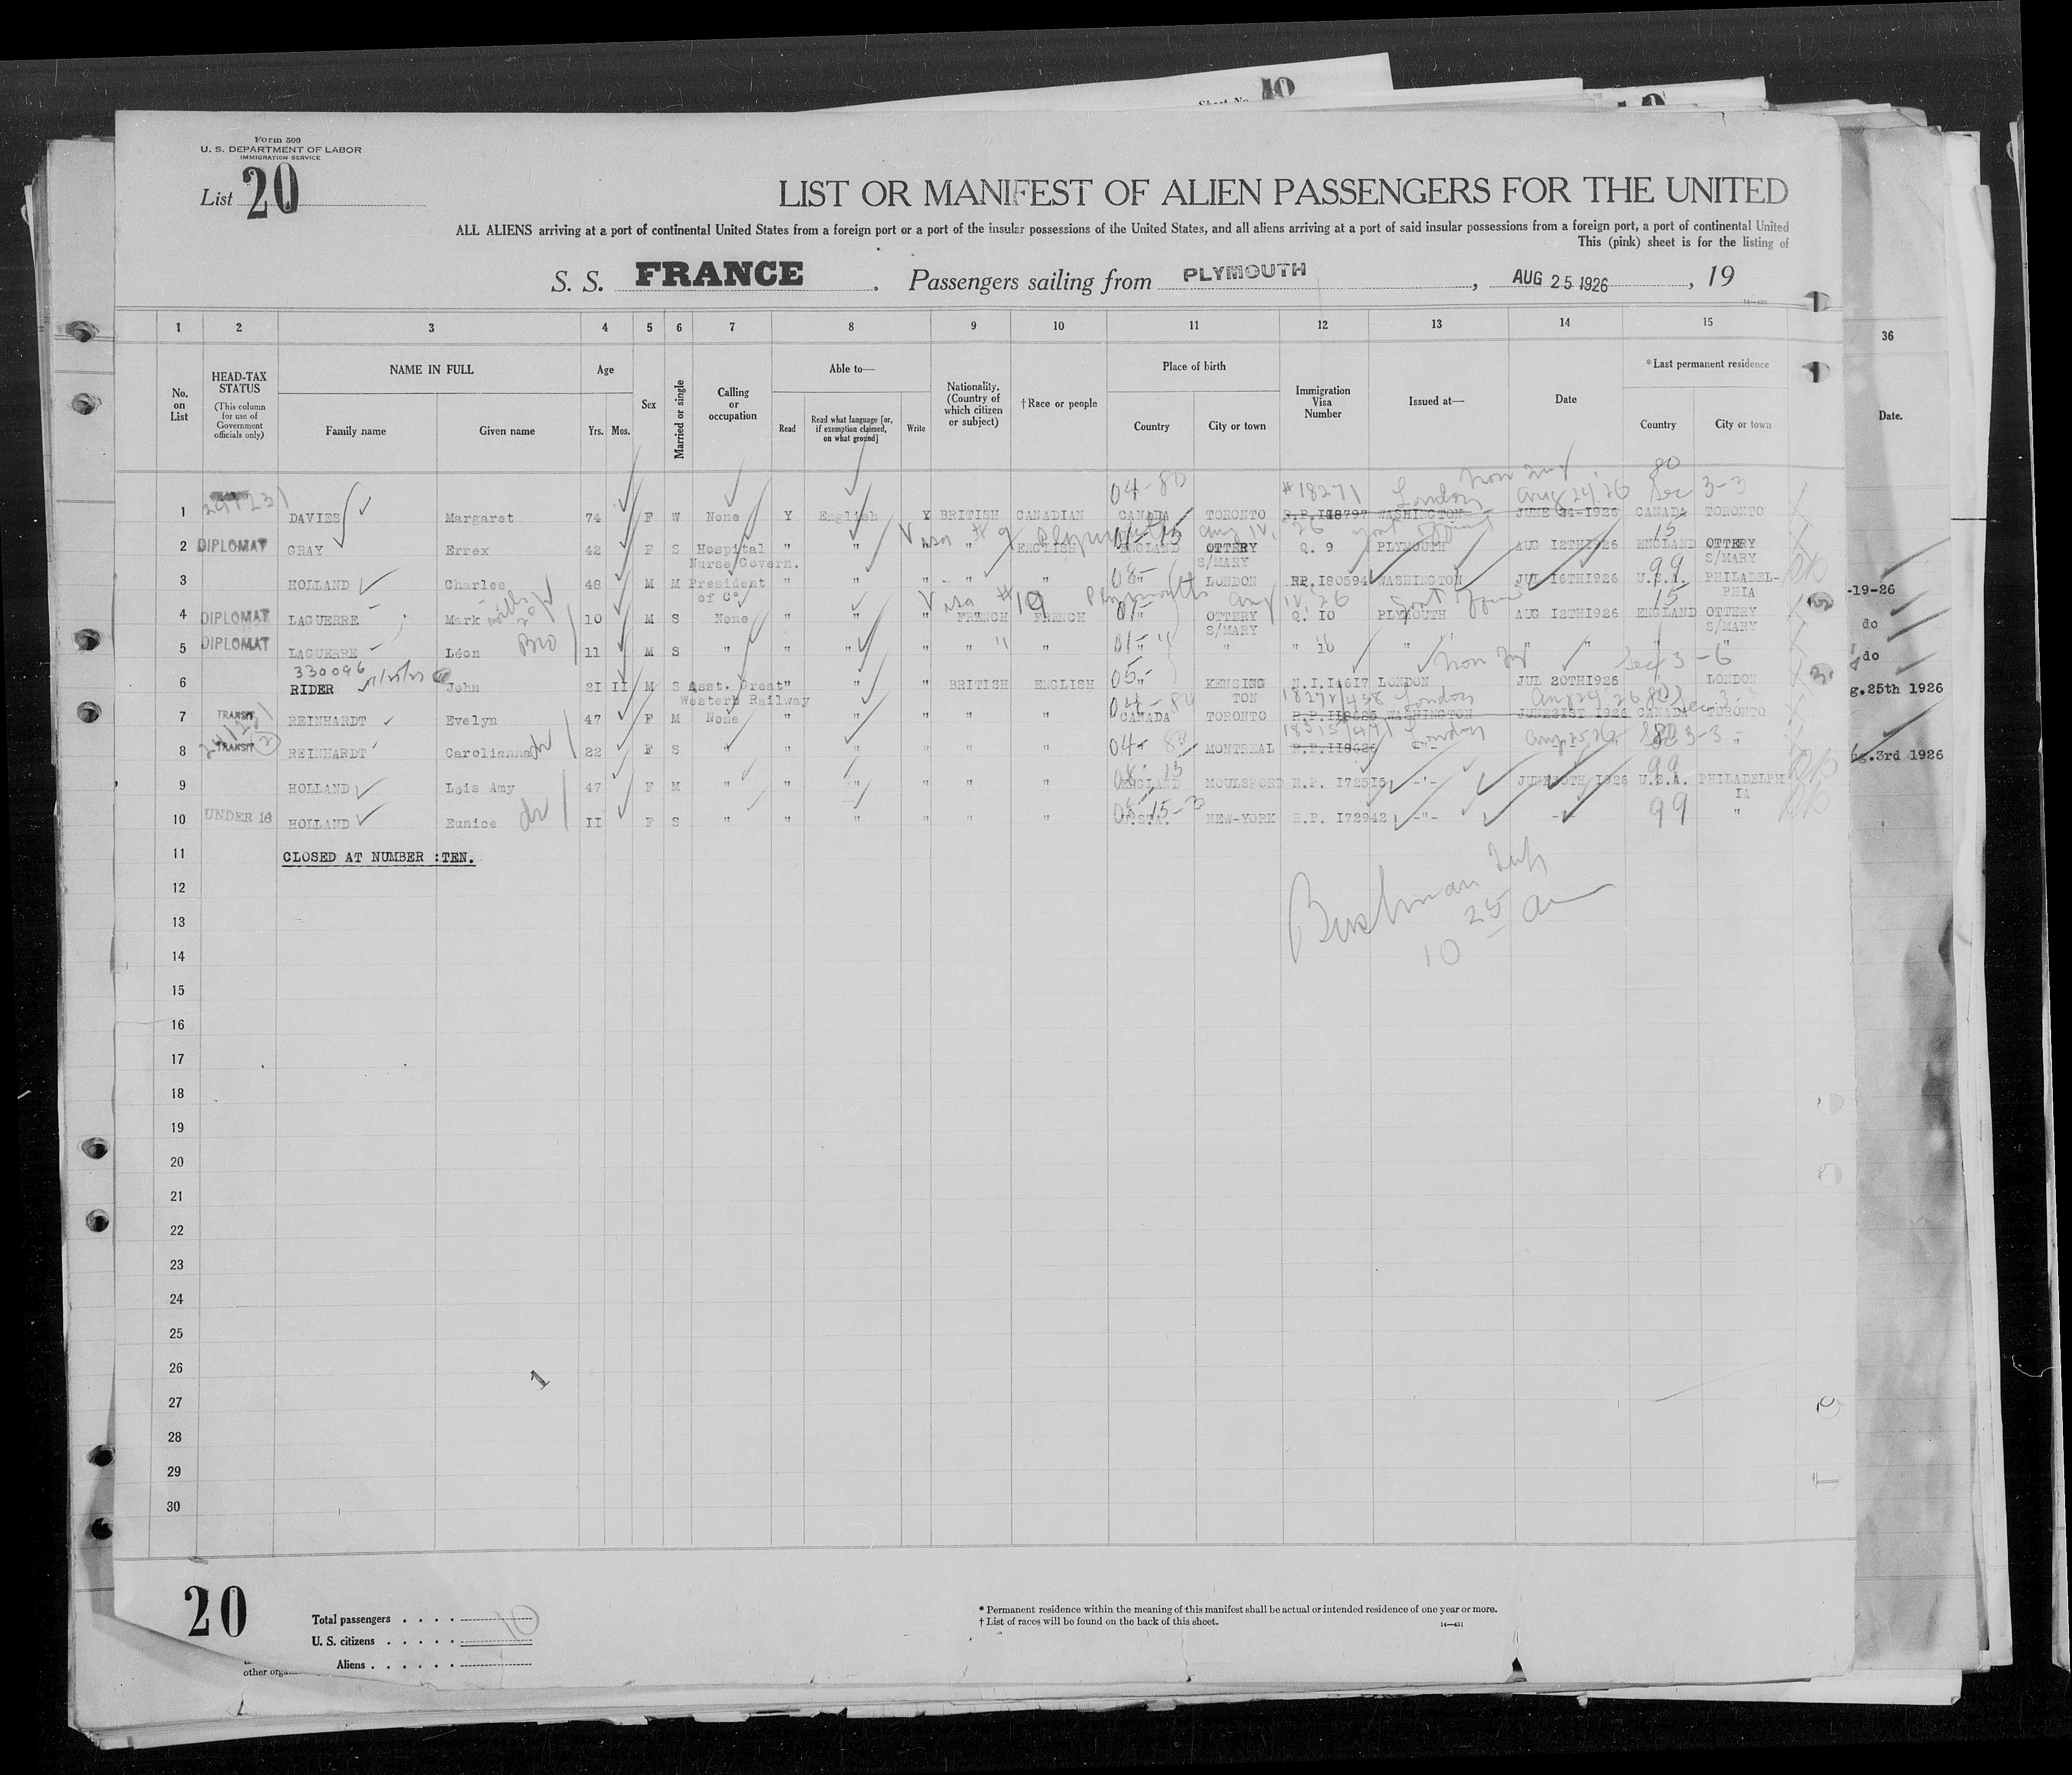 10
Sheet No.
Form 500
U. S. DEPARTMENT OF LABOR
IMMIGRATION SERVICE
List 20
LIST OR MANIFEST OF ALIEN PASSENGERS FOR THE UNITED
ALL ALIENS arriving at a port of continental United States from a foreign port or a port of the insular possessions of the United States, and all aliens arriving at a port of said insular possessions from a foreign port, a port of continental United
This (pink) sheet is for the listing of
S. S. FRANCE . Passengers sailing from PLYMOUTH , AUG 25 1926 , 19
1 2 3 4 5 6 7 8 9 10 11 12 13 14 15 36
No. on List
HEAD-TAX STATUS
(This column for use of Government officials only)
NAME IN FULL
Family name Given name
Age
Yrs. Mos.
Sex
Married or single
Calling or occupation
Able to—
Read
Read what language [or, if exemption claimed, on what ground]
Write
Nationality. (Country of which citizen or subject)
†Race or people
Place of birth
Country City or town
Immigration Visa Number
Issued at—
Date
*Last permanent residence
Country City or town
Date.
04-80 #18271 London Aug 24/26 80 Sec 3-3
1 DAVIES Margaret 74 F W None Y English Y BRITISH CANADIAN CANADA TORONTO R.P.118797 WASHINGTON JUNE 1926 CANADA TORONTO
Visa # 9 Plymouth Aug 12, 26 15
2 DIPLOMAT GRAY Errex 42 F S Hospital " " " " ENGLISH ENGLAND OTTERY Q. 9 PLYMOUTH AUG 12TH1926 ENGLAND OTTERY
Nurse Govern. S/MARY S/MARY
3 HOLLAND Charles 48 M M President " " " " " " LONDON RP.I80594 WASHINGTON JUL 16TH1926 U.S.A. PHILADEL-
of C° PHIA
Visa # 19 Plymouth Aug 12, 26 15
-19-26
4 DIPLOMAT LAGUERRE Mark 10 M S None " " " FRENCH FRENCH " OTTERY Q. IO PLYMOUTH AUG 12TH1926 ENGLAND OTTERY
S/MARY S/MARY
do
5 DIPLOMAT LAGUERRE Léon Bro 11 M S " " " " " " " " " 10 " " " "
do
330096 Sec 3-6
6 RIDER John 2I II M S Asst. Great " " " BRITISH ENGLISH " KENSING N.I.I4617 LONDON JUL 20TH1926 " LONDON
Western Railway TON
g.25th 1926
London Aug 24 26 80
7 TRANSIT REINHARDT Evelyn 47 F M None " " " " " CANADA TORONTO R.P.II8625 WASHINGTON JUNE21ST 1926 CANADA TORONTO
London Sec 3-3
8 TRANSIT REINHARDT Carolianna 22 F S " " " " " " " MONTREAL R.P.II8626 -"- " "
g.3rd 1926
9 HOLLAND Lois Amy 47 F M " " " " " " ENGLAND MOULSFORD R.P. I725I5 -"- 1926 U.S.A. PHILADELPH
IA
10 UNDER 16 HOLLAND Eunice II F S " " " " " " U.S.A. NEW-YORK R.P. I72942 -"- -"- 99 "
11 CLOSED AT NUMBER :TEN.
12
13
14
15
16
17
18
19
20
21
22
23
24
25
26
27
28
29
30
20
Total passengers . . . . 10
U. S. citizens . . . . .
Aliens . . . . . .
* Permanent residence within the meaning of this manifest shall be actual or intended residence of one year or more.
† List of races will be found on the back of this sheet.
14—431